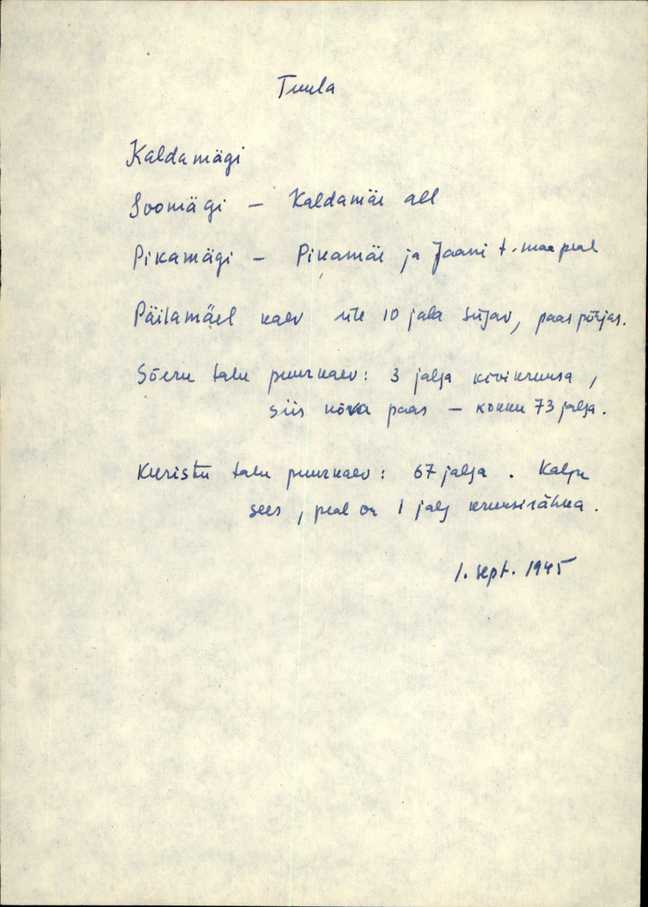 Tuula
Kaldamägi
Soomägi – Kaldamäe all
Pikamägi – Pikamäe ja Jaani t. maa peal
Päilamäel kaev üle 10 jala sügav, paas põhjas.
Sõeru talu puurkaev: 3 jalga kivikruusa,
siis kõva paas – kokku 73 jalga.
Kuristu talu puurkaev: 67 jalga. Kalju
sees, peal on 1 jalg kruusirähka.
1. sept. 1945